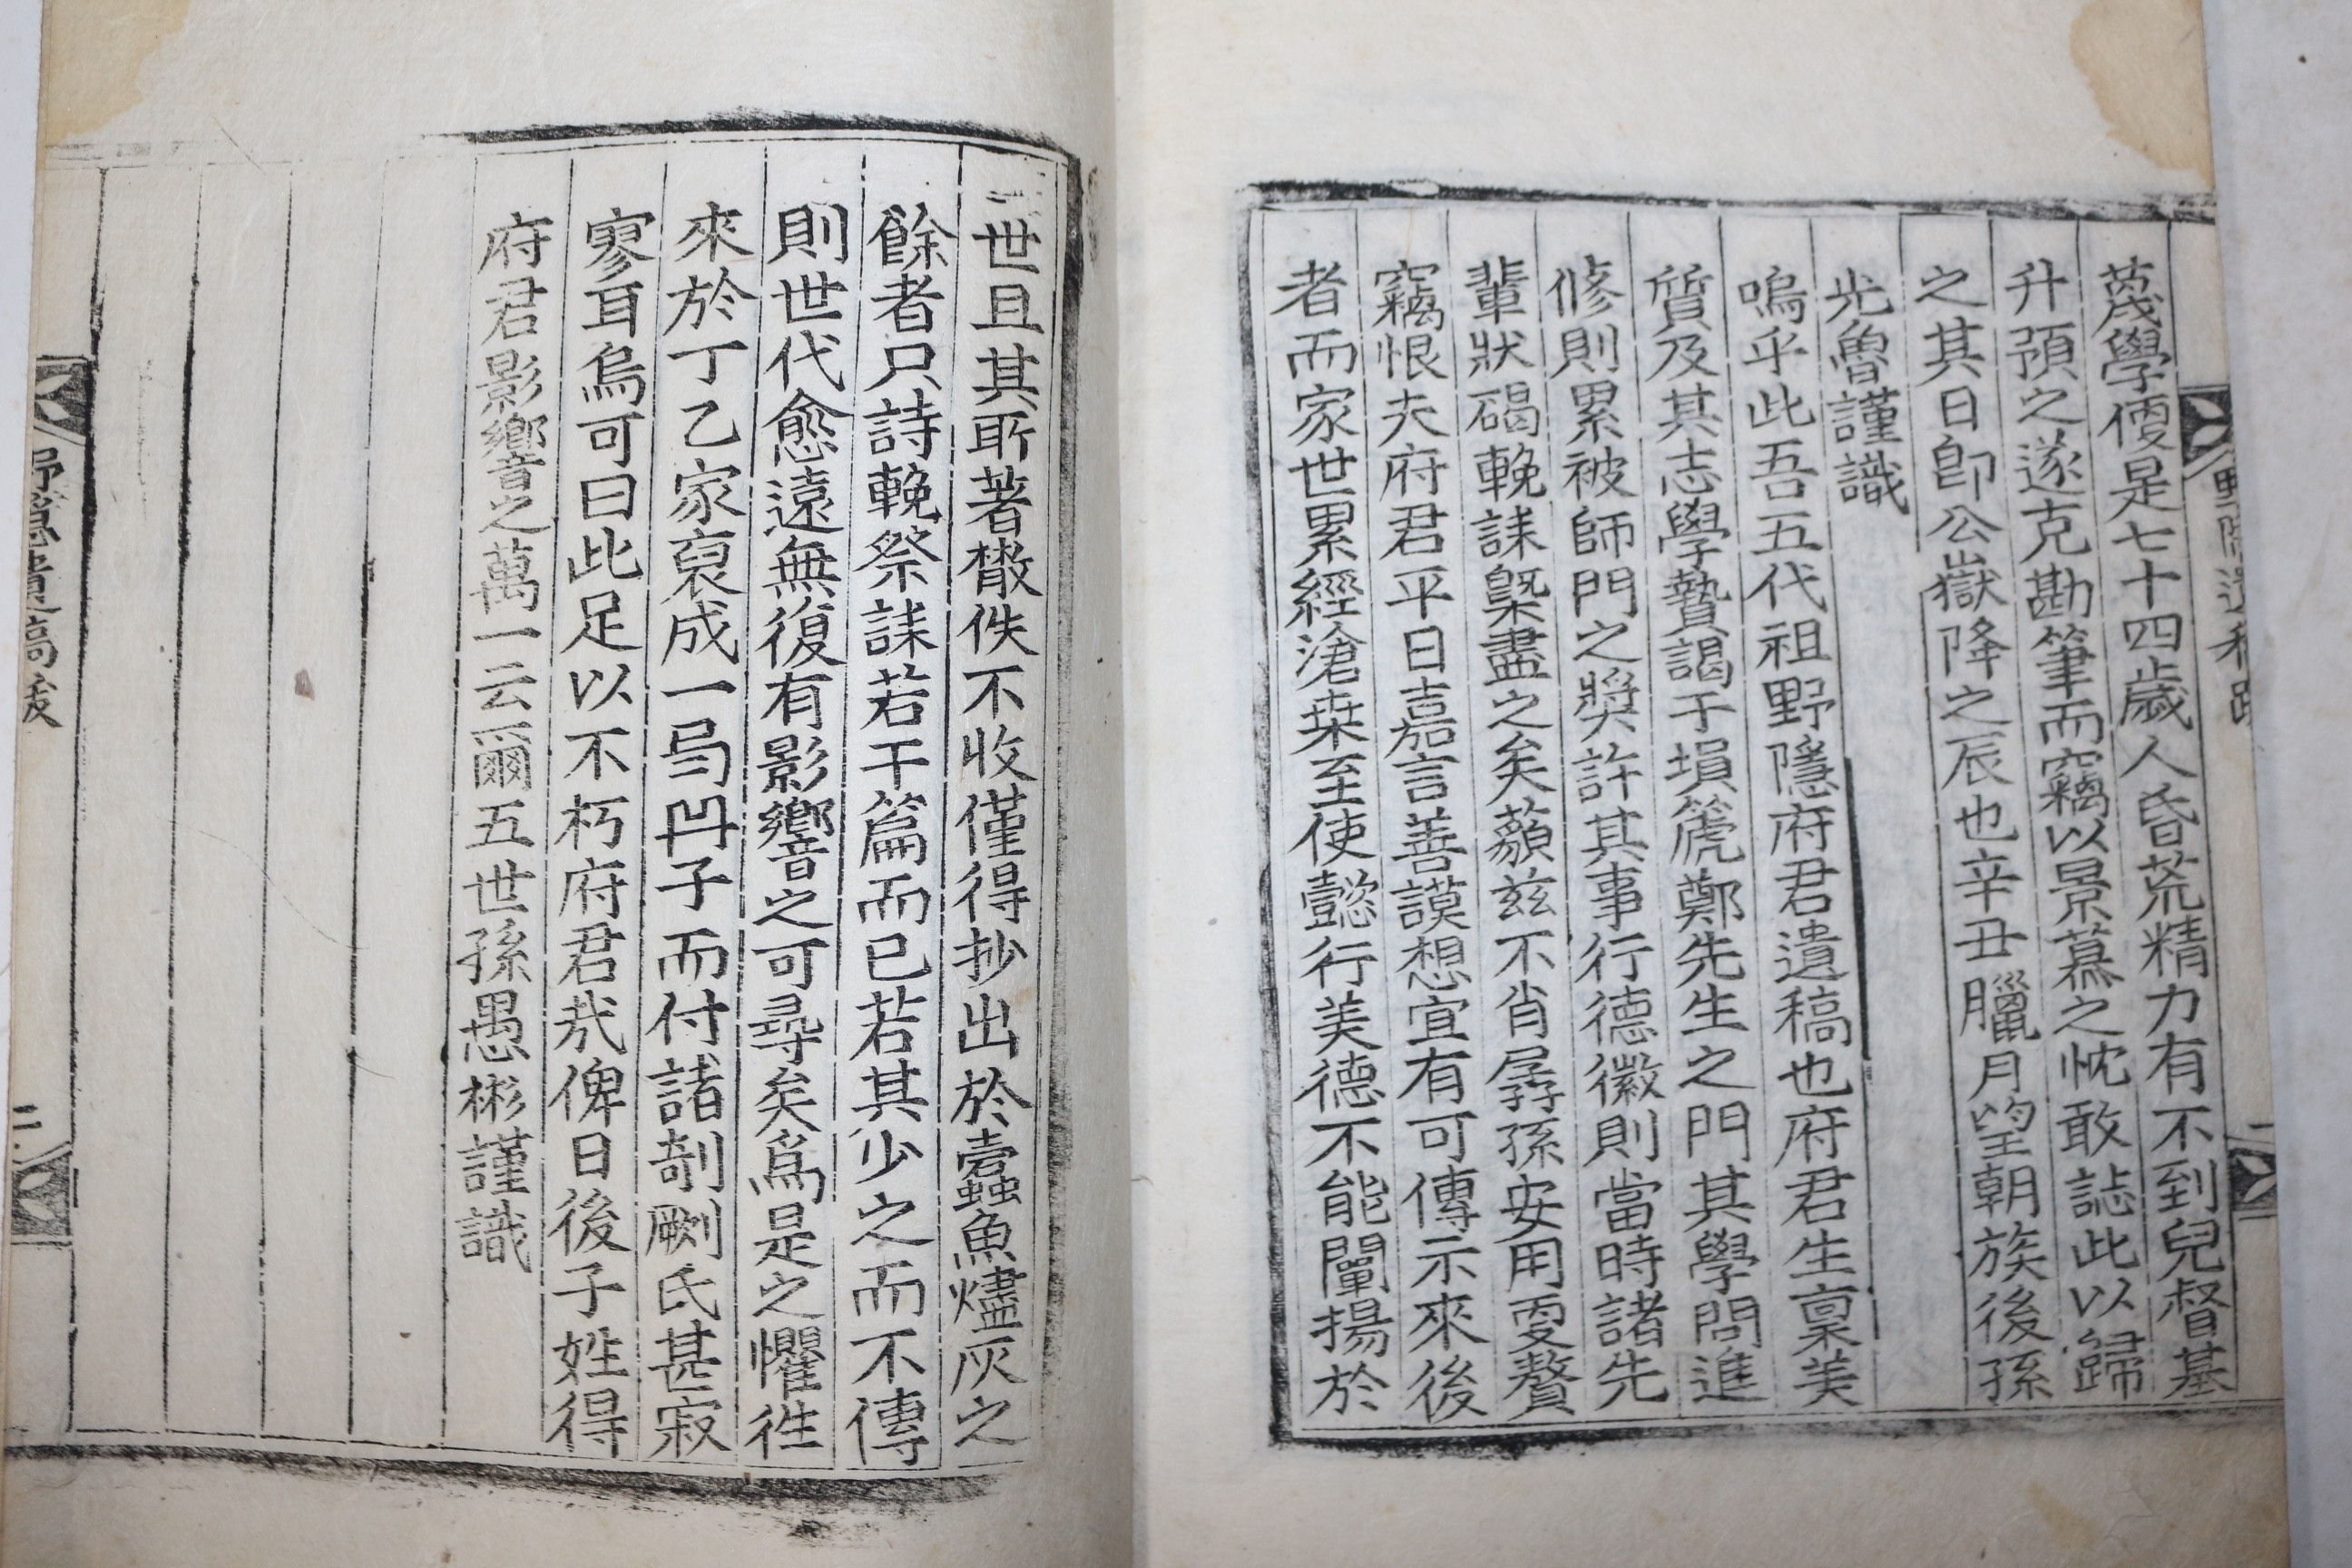 野隱遺稿跋
茂學便是七十四歲人昏荒精力有不到兒督基
升預之遂克勘筆而竊以景慕之忱敢誌此以歸
之其日卽公嶽降之辰也辛丑臘月望朝族後孫
光魯謹識
嗚乎此吾五代祖野隱府君遺稿也府君生稟美
質及其志學贄謁于塤篪鄭先生之門其學問進
修則累被師門之奬許其事行德徽則當時諸先
輩狀碣輓誄槩盡之矣藐玆不肖孱孫安用更贅
竊恨夫府君平日嘉言善謨想宜有可傳示來後
者而家世累經滄桒至使懿行美德不能闡揚於
世且其所著散佚不收僅得抄出於蠹魚燼灰之
餘者只詩輓祭誄若干篇而已若其少之而不傳
則世代愈遠無復有影響之可尋矣爲是之懼徃
來於丁乙家裒成一局丹子而付諸剞劂氏甚寂
寥耳烏可曰此足以不朽府君㢤俾日後子姓得
府君影響之萬一云爾五世孫愚彬謹識
野隱遺稿跋
二